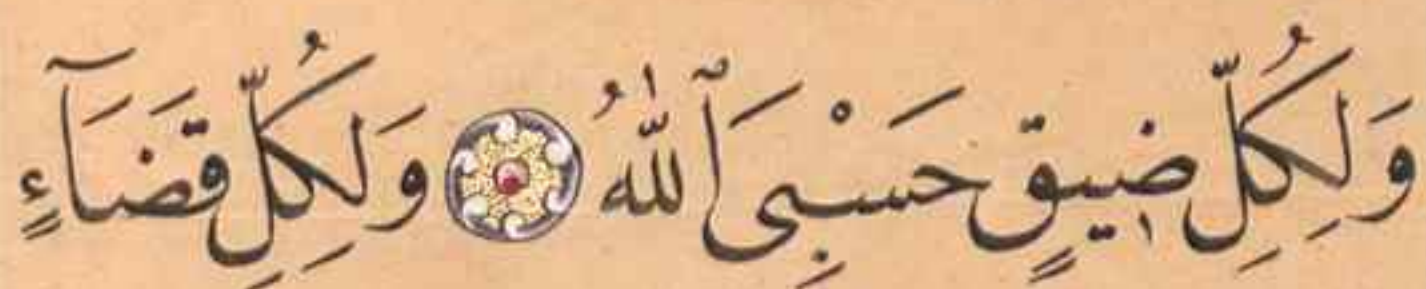 وَلِكُلِّ ضِيقٍ حَسْبِىَ ٱللّٰهُ وَلِكُلِّ قَضَآءٍ